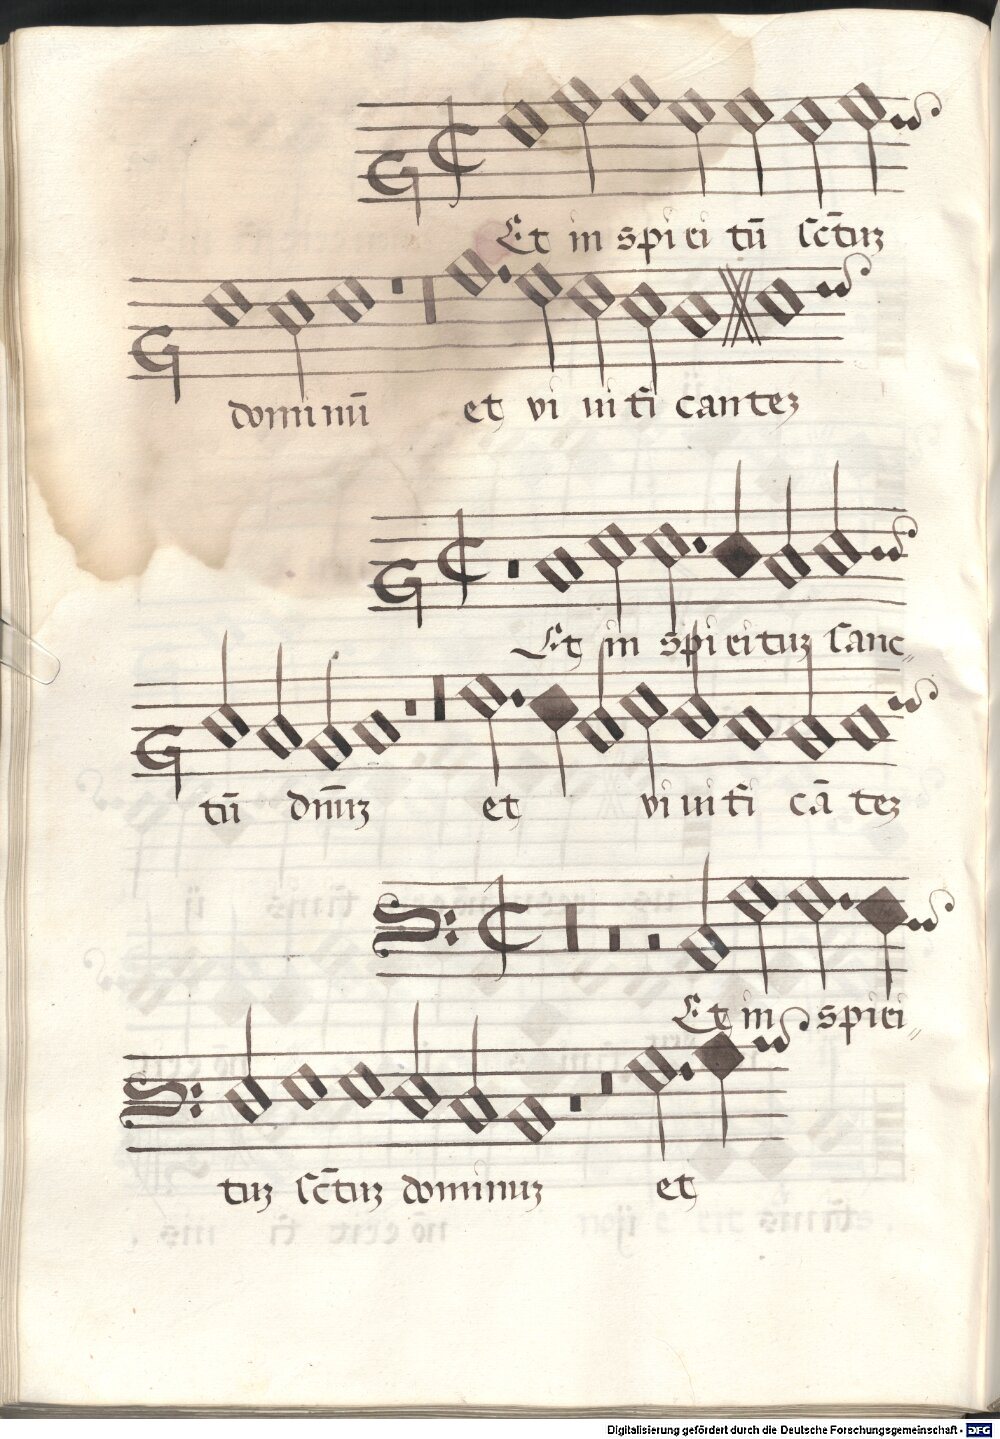 Et in spi ri tū sc̄tuꝫ
domi nū et vi uifi canteꝫ
Et in spi rituꝫ sanc〃
tū dn̄uꝫ et vi uifi cā teꝫ
Et in spiri〃
tuꝫ sc̄tuꝫ dominuꝫ et
Digitalisierung gefördert durch die Deutsche Forschungsgemeinschaft - DFG